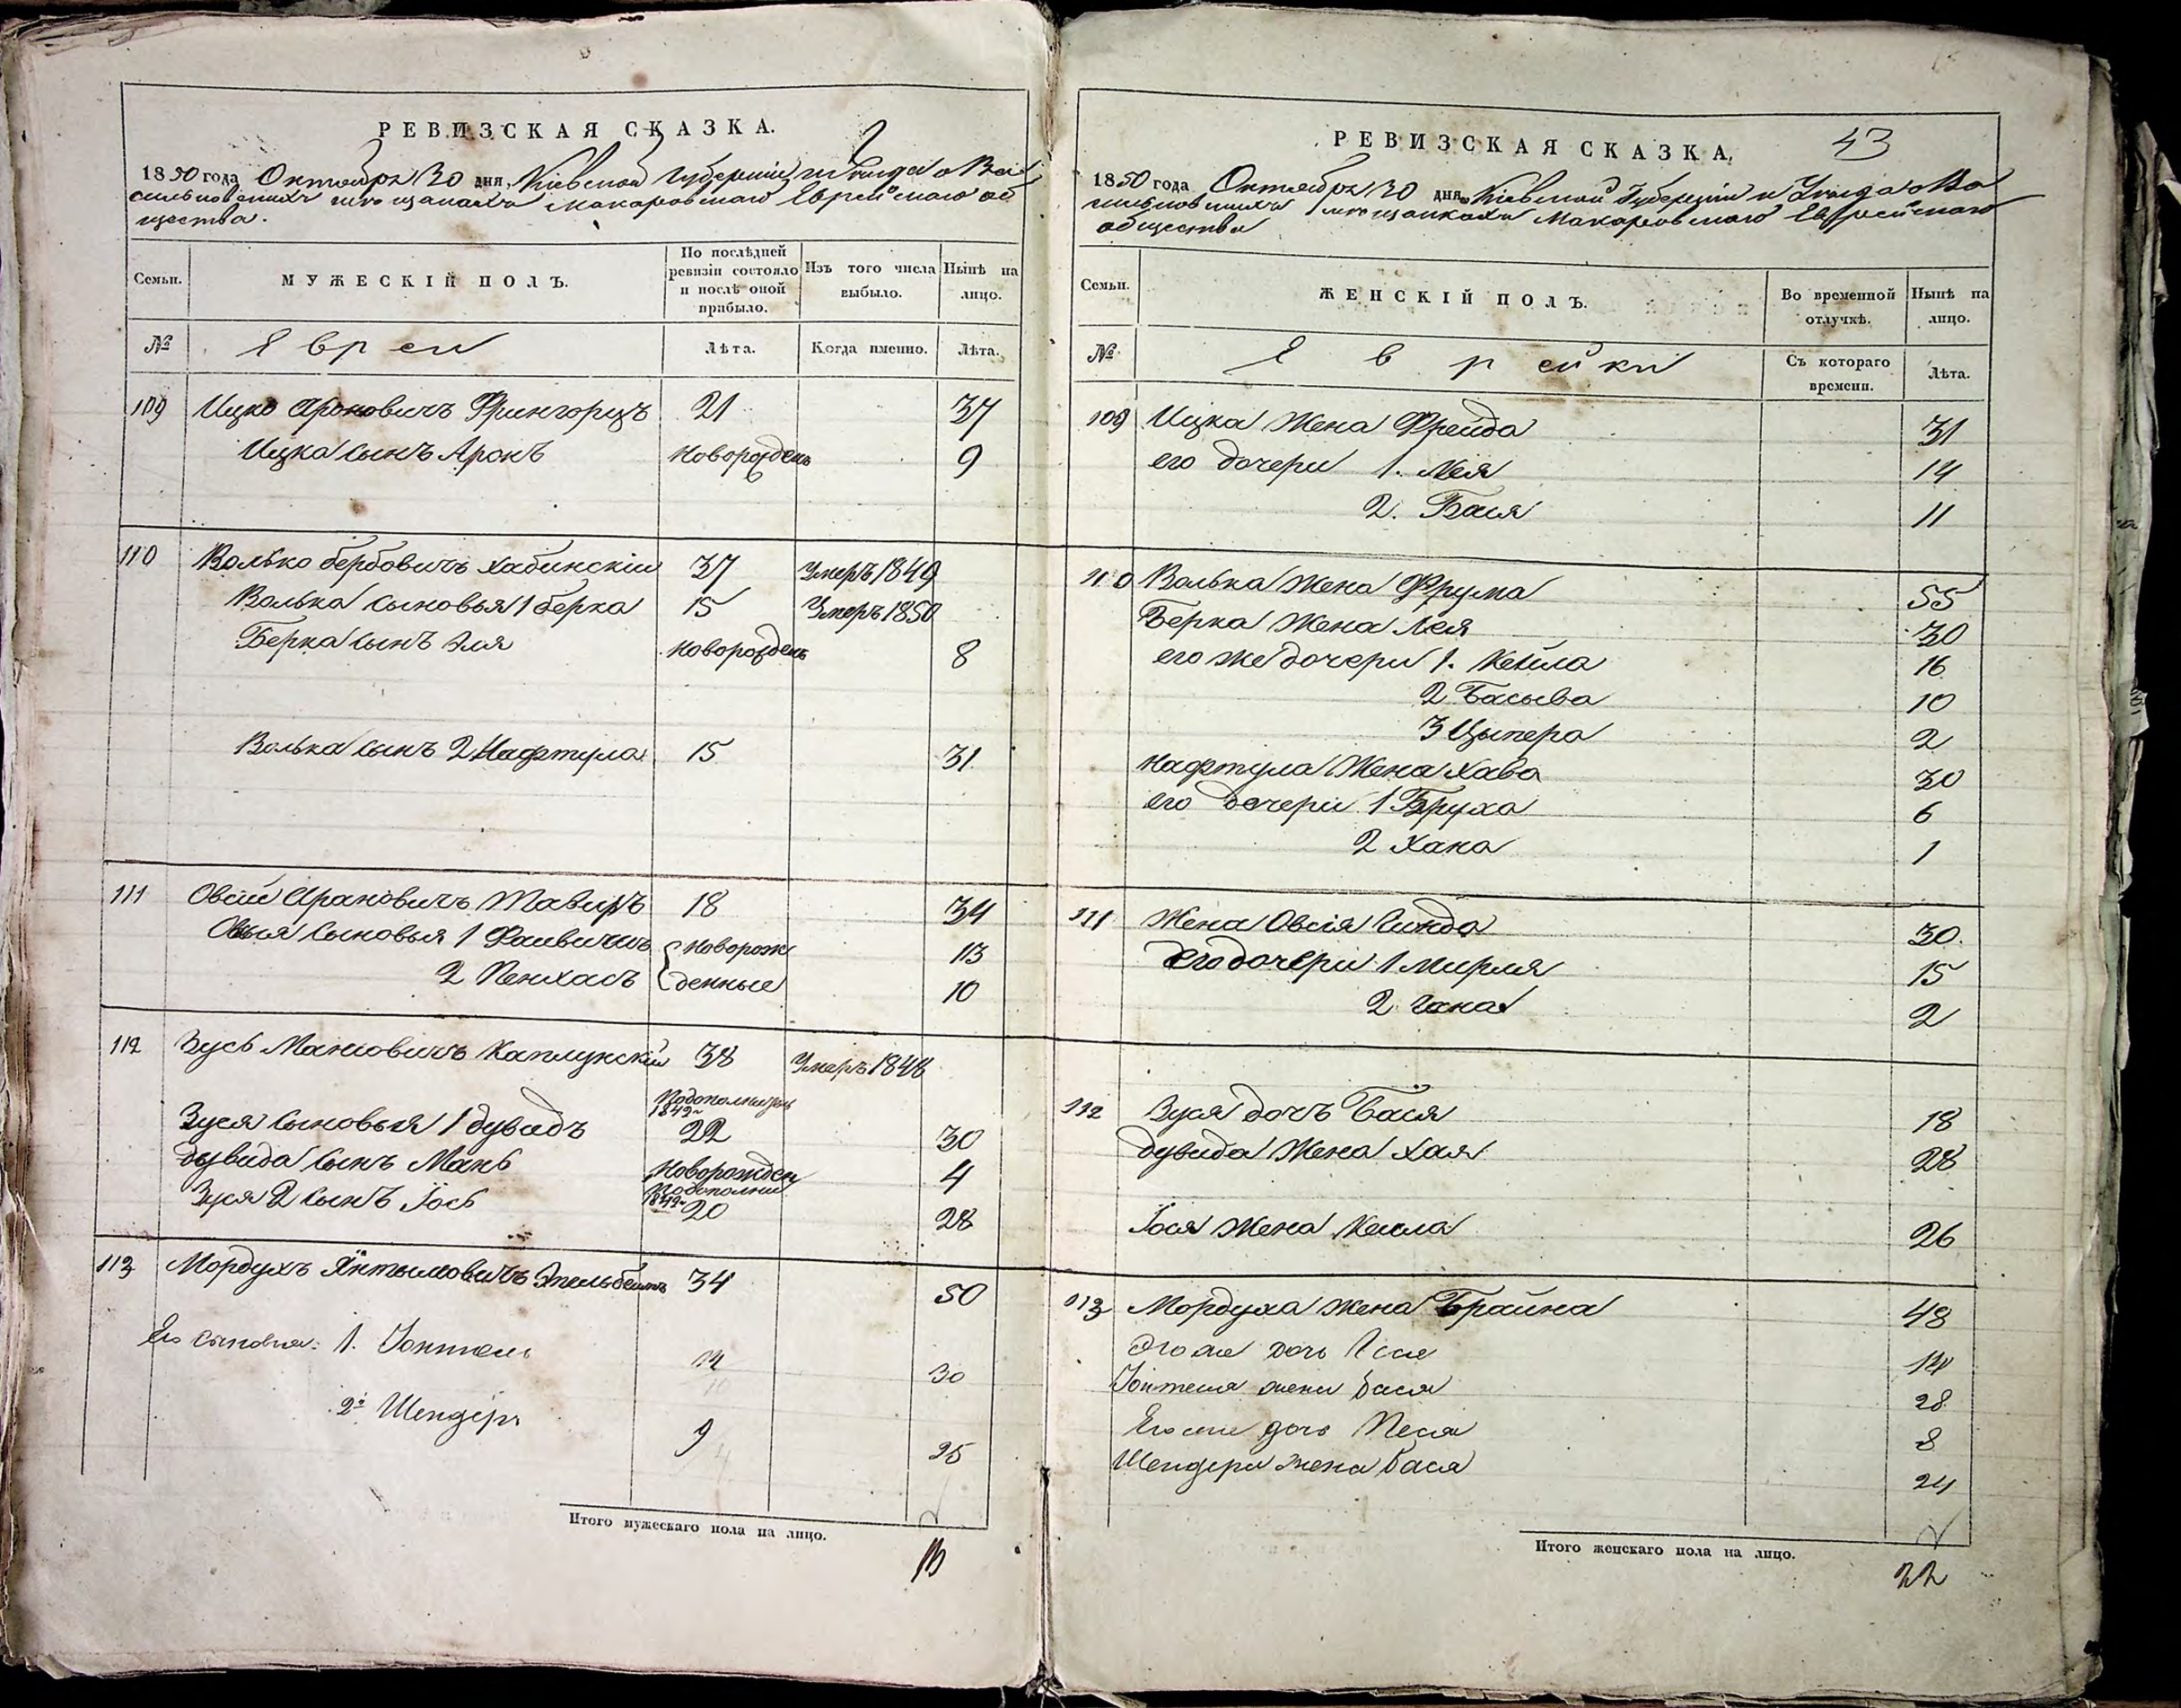 РЕВИЗСКАЯ СКАЗКА.
1850 года Октября 30 дня, Кіевской Губерніи и уѣзда о Ва
сильковскихъ мѣщанахъ Макаровскаго Еврейскаго об
щества.
Семьи.
МУЖЕСКІЙ ПОЛЪ.
По послѣдней ревизіи состояло и послѣ оной прибыло.
Изъ того числа выбыло.
Нынѣ на лицо.
№
Евреи
Лѣта.
Когда именно.
Лѣта.
109 Ицко Ароновичъ Фрингорцъ 21 37
Ицка сынъ Аронъ новорожденъ 9
110 Волько Берковичъ Хабинскій 37 Умеръ 1849
Волька сыновья 1 Берка 15 Умеръ 1850
Берка сынъ Эля новорожденъ 8
Волька сынъ 2 Нафтула 15 31
111 Овсій Ароновичъ 18 34
Овсія сыновья 1 Файвишъ новорож 13
2 Пенхасъ денные 10
112 Зусь Маньовичъ Каплунскій 38 Умеръ 1848
Зуся сыновья 1 Дувидъ 22 30
Дувида сынъ Мань Новорожден 4
Зуся 2 сынъ Іось 20 28
113 Мордухъ 34 50
Его сыновья: 1. Іонтель 14 30
2й Шендеръ 9 25
Итого мужескаго пола на лицо.
РЕВИЗСКАЯ СКАЗКА.
43
1850 года Октября 30 дня Кіевской Губерніи и Уѣзда о Ва
сильковскихъ мѣщанкахъ Макаровскаго Еврейскаго
общества
Семьи.
ЖЕНСКІЙ ПОЛЪ.
Во временной отлучкѣ.
Нынѣ на лицо.
№
Еврейки
Съ котораго времени.
Лѣта.
109 Ицка жена Фрейда 31
его дочери 1. Лея 14
2. Бася 11
110 Волька жена Фрума 55
Берка жена Лея 30
его же дочери 1. Кейла 16
2 Басыва 10
3 Цыпера 2
Нафтула жена Хава 30
его дочери 1 Бруха 6
2 Хана 1
111 Жена Овсія Гинда 30
Его дочери 1 Мирля 15
2 Гана 2
112 Зуся дочъ Бася 18
Дувида жена Хая 28
Іося жена Кейла 26
113 Мордуха жена Брайна 48
Его же дочь 14
Іонтеля жена Бася 28
Его же дочь Песя 8
Шендера жена Бася 24
Итого женскаго пола на лицо.
22